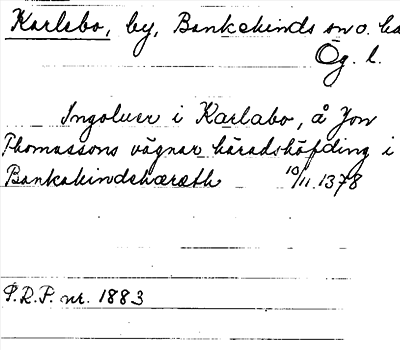 Karlabo, by, Bankekinds sn o. ha
Ög. l.
Ingoluer i Karlabo, å Jon
Thomassons vägnar häradshöfding i
Bankakindshæræth 10/11 1378
P.R.P. nr. 1883